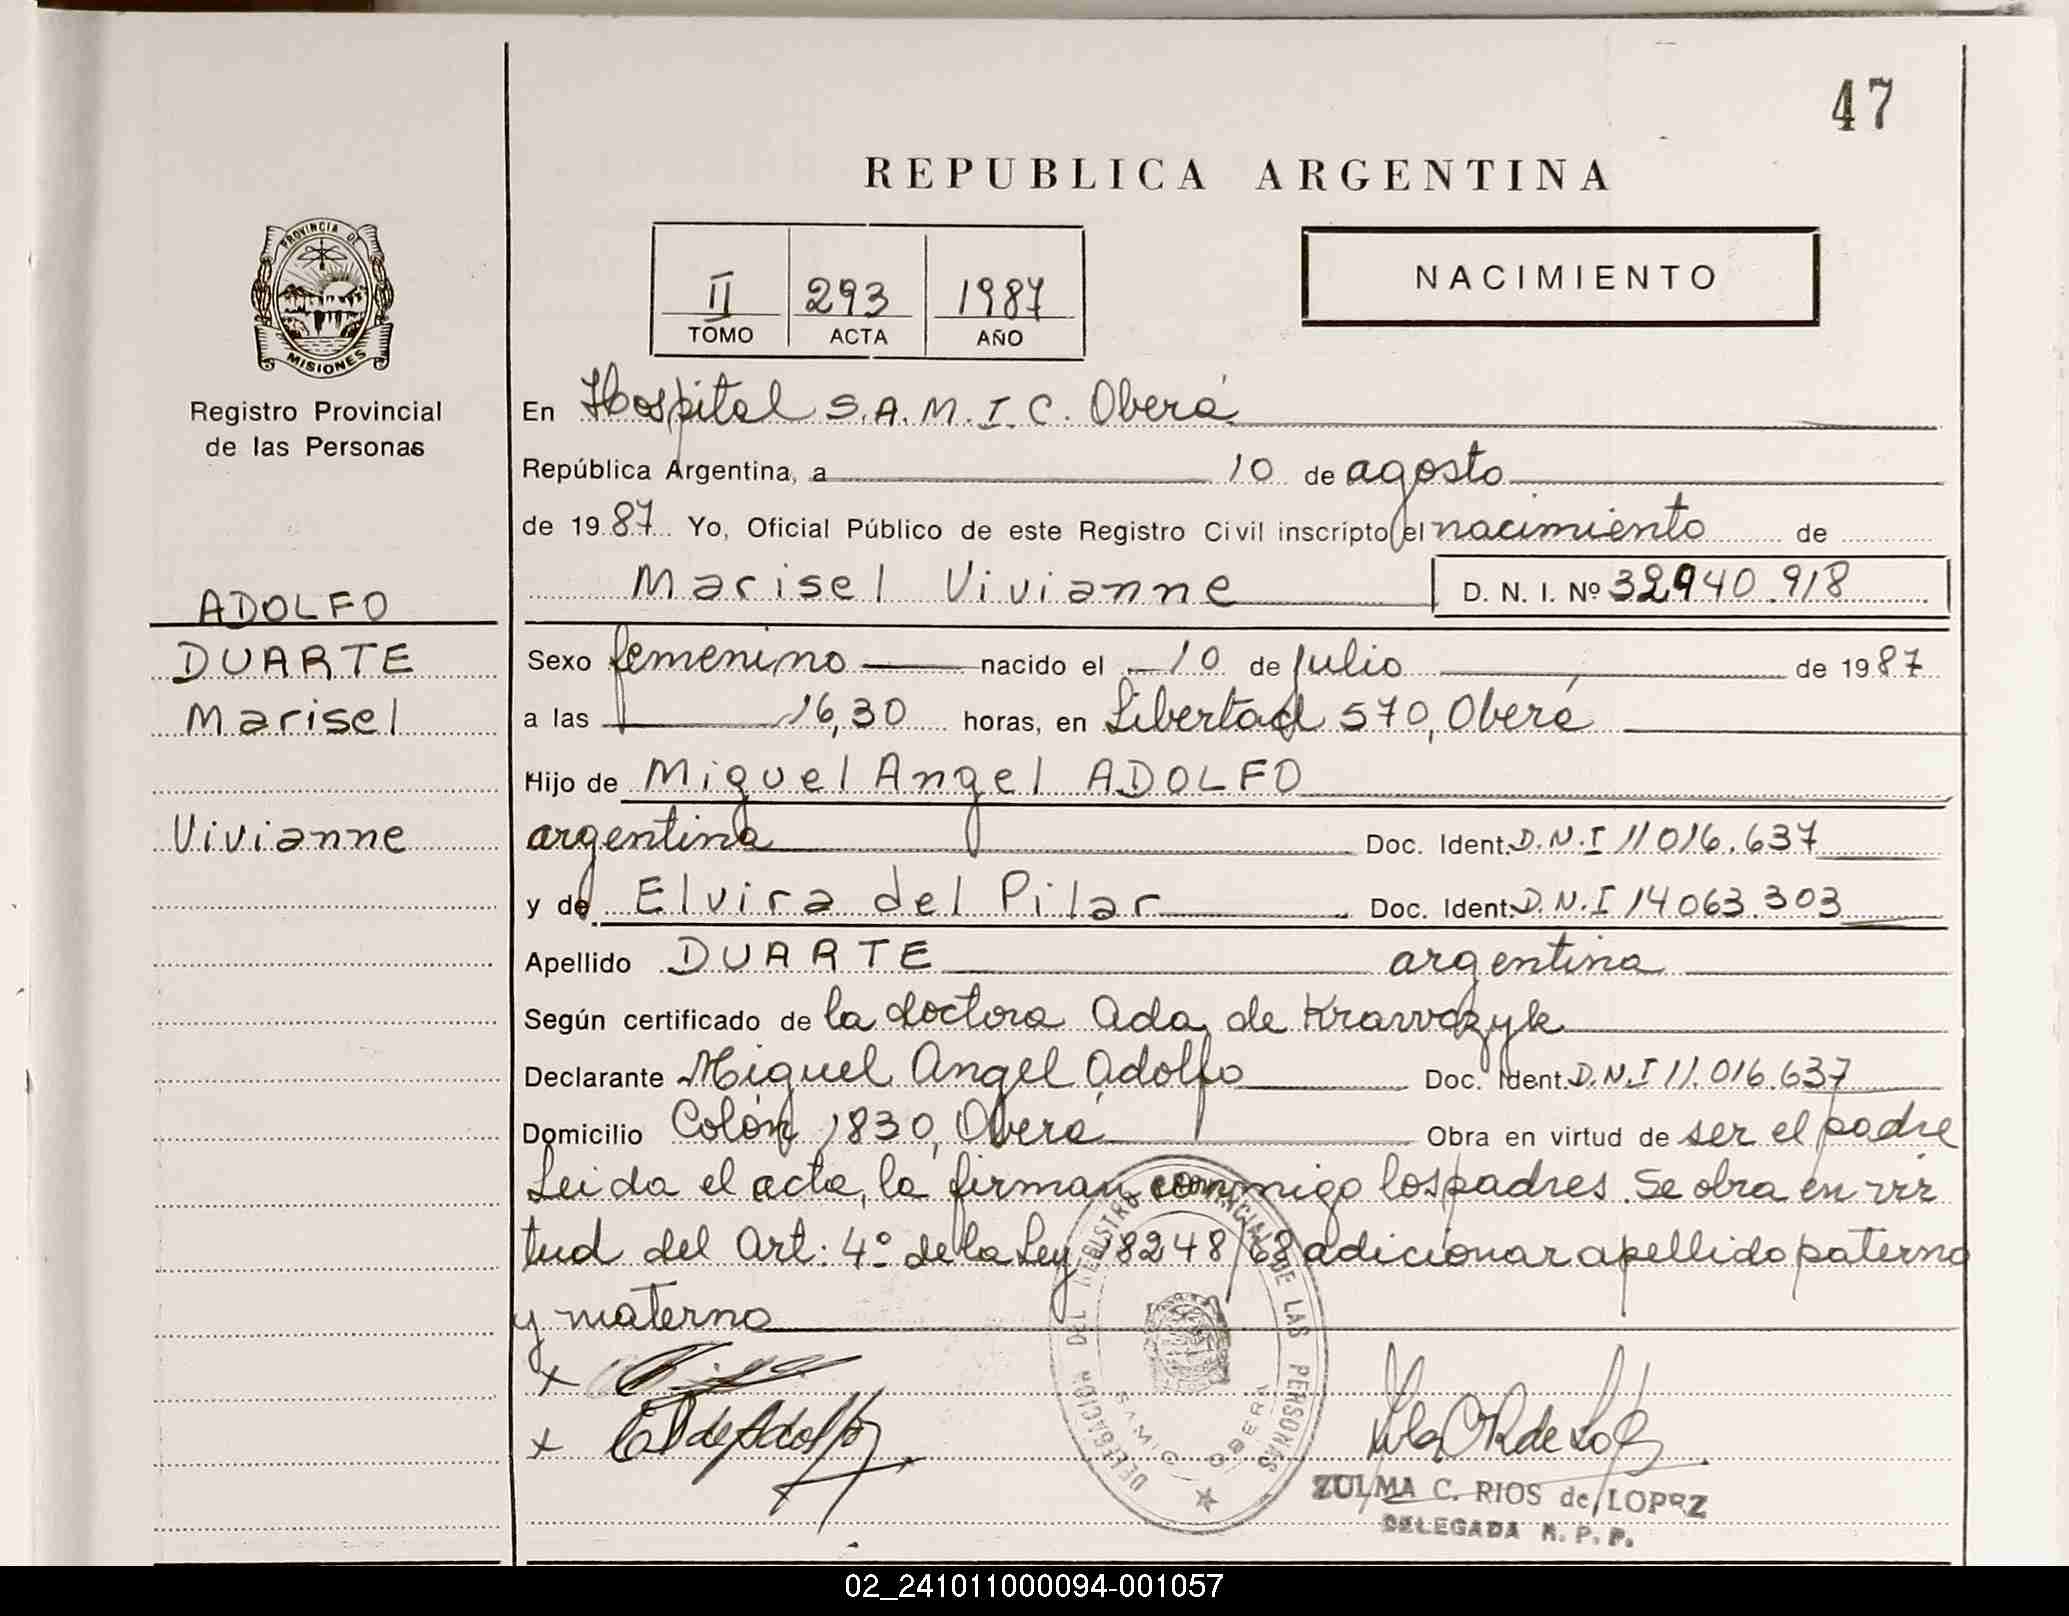 47
REPUBLICA ARGENTINA
PROVINCIA DE
MISIONES
Registro Provincial
de las Personas
II 293 1987
TOMO ACTA AÑO
NACIMIENTO
En Hospital S.A.M.I.C. Oberá
República Argentina, a 10 de agosto
de 1987 Yo, Oficial Público de este Registro Civil inscripto el nacimiento de
Marisel Vivianne D. N. I. Nº 32940.918
ADOLFO
DUARTE
Marisel
Vivianne
Sexo femenino nacido el 10 de Julio de 1987
a las 16,30 horas, en Libertad 570, Oberá
Hijo de Miguel Angel ADOLFO
argentina Doc. Ident. D.N.I 11016.637
y de Elvira del Pilar Doc. Ident. D.N.I 14063.303
Apellido DUARTE argentina
Según certificado de la doctora Ada de
Declarante Miguel Angel Adolfo Doc. Ident. D.N.I 11.016.637
Domicilio Colón 1830, Oberá Obra en virtud de ser el padre
Leida el acta, la firman conmigo los padres. Se obra en vir
tud del Art: 4º de la Ley 18248/68 adicionar apellido paterno
y materno
x
x E D de Adolfo
DELEGACION DEL REGISTRO PROVINCIAL DE LAS PERSONAS
SAMIC OBERA
ZULMA C. RIOS de LOPEZ
DELEGADA R. P. P.
02_241011000094-001057